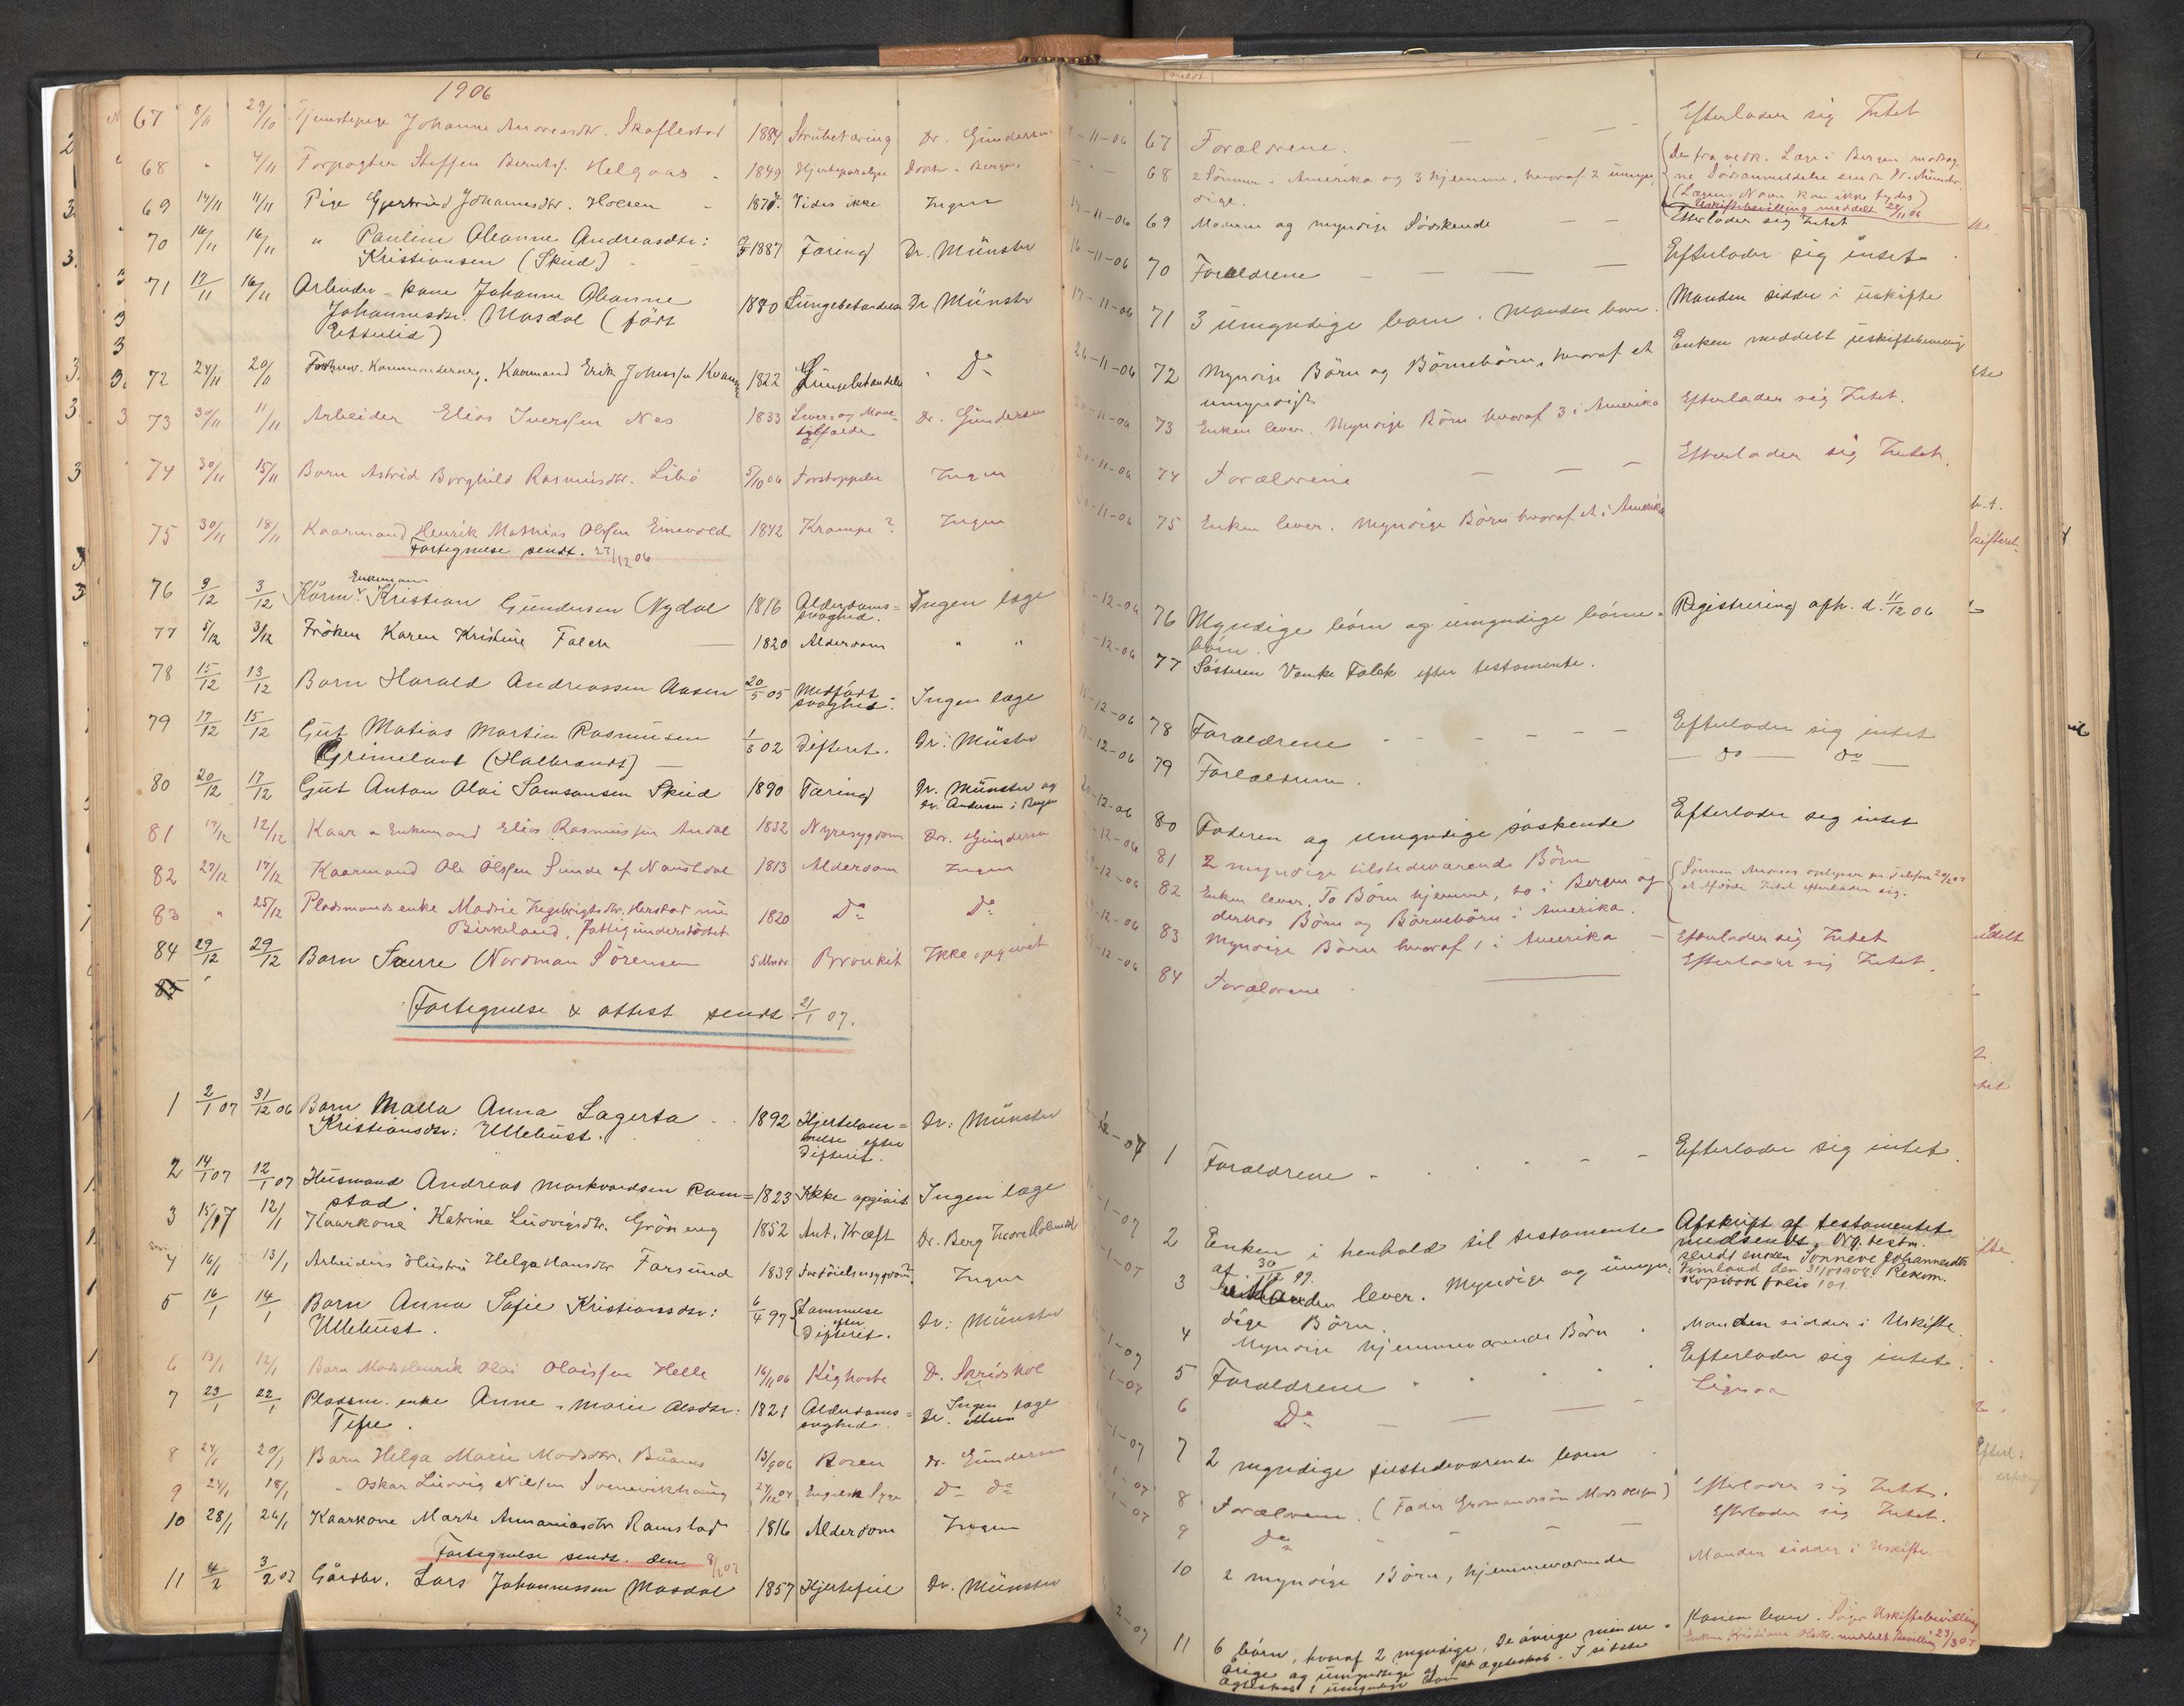 1906
67 8/11 29/10 Tjenestepige Johanne Andreasdtr. Skaflestad 1884 Strubetæring Dr. Gundersen
68 " 4/11 Forpagter Steffen Berntsf. Helgaas 1849 Hjerteparalyse Doktor i Bergen
69 14/11 11/11 Pige Gjertrud Johannesdtr. Hoesen 1878 Vides ikke Ingen
70 16/11 16/11 " Pauline Oleanne Andreasdtr:
Kristiansen (Skud) 1887 Tæring Dr. Münster
71 17/11 16/11 Arbeider-kone Johanne Oleanne
Johannesdtr. Masdal (født
1880 Lungebetændelse Dr Münster
72 24/11 20/11 Kaarmand Erik Johnssen 1822 Lungebetændelse " Do
73 30/11 11/11 Arbeider Elias Iverssen Nes 1833 Lever og Mave-
tilfælde Dr. Gundersen
74 30/11 15/11 Barn Astrid Borghild Rasmusdtr. Libø 5/10 06 Forstoppelse Ingen
75 30/11 18/11 Kaarmand Henrik Mathias Olssen Einevold 1842 Krampe? Ingen
Fortegnelse sendt. 27/12 06
76 9/12 3/12 Kårm. & Enkemann Kristian Gundersen Nydal 1816 Alderdoms=
svaghed. Ingen læge
77 5/12 3/12 Frøken Karen Kristine Falck 1820 Alderdom " "
78 15/12 13/12 Barn Harald Andreassen Aasen 20/5 05 Medfødt
svaghed. Ingen læge
79 17/12 15/12 Gut Matias Martin Rasmusen
Grimeland (Halbrendt) 1/3 02 Difterit. Dr. Müster
80 20/12 17/12 Gut Anton Olai Samsonsen Skud 1890 Tæring Dr. Münster og
Dr. Andersen i Bergen
81 17/12 12/12 Kaar- & Enkemand Elias Rasmussen Andal 1832 Nyresygdom Dr. Gundersen
82 27/12 17/12 Kaarmand Ole Olssen Sunde af Naustdal 1813 Alderdom Ingen
83 " 25/12 Pladsmandsenke Madsie Ingebrigtsdtr. Herstad nu
Birkeland, Fattigunderstøttet 1820 Do Do
84 29/12 29/12 Barn Sverre Nordman Sørensen 5 Mndr Bronkit Ikke opgivet
85
Fortegnelse & attest sendt 21/1 07.
1 2/1 07 31/12 06 Barn Malla Anna Lagerta
Kristiansdtr: Ullehust. 1892 Hjertelam=
melse efter
Difterit. Dr: Münster
2 14/1 07 12/1 07 Husmand Andreas Markvardsen Ram=
stad. 1823 Ikke opgivet Ingen læge
3 15/1 07 12/1 Kaarkone Katrine Ludvigsdtr. Grøneng 1852 Ant. Kræft Dr. Berg
4 16/1 13/1 Arbeiders Hustru Helga Hansdtr Farsund 1839 Fordøielsessygdom? Ingen
5 16/1 14/1 Barn Anna Sofie Kristiansdtr:
Ullehust. 6/4 97 Lammelse
efter
Difterit. Dr: Münster
6 13/1 12/1 Barn Mads Henrik Olai Olaissen Helle 16/11 06 Kighoste D. Skridshol
7 23/1 22/1 Pladsm. enke Anne-Marie Olsdtr:
Tefre. 1821 Alderdoms=
svaghed. Ingen læge
8 24/1 20/1 Barn Helga Marie Madsdtr. Buanes 13/9 06 Rosen Dr. Gundersen
9 24/1 18/1 " Oskar Ludvig Nilsen Svenevikhaug 24/12 04 Engelsk Syge Do Do
10 28/1 26/1 Kaarkone Marte Ananiasdtr Ramstad 1816 Alderdom Ingen
Fortegnelse sendt. den 8/2 07
11 4/2 3/2 07 Gårdbr. Lars Johannessen Masdal 1857 Hjertefeil Dr. Münster
meldt
11-06 67 Forældrene. Efterlader sig Intet
68 2 Sønner i Amerika og 3 hjemme, hvoraf 2 umyn-
dige. den fra vedk. Læge i Bergen modtag-
ne Dødsanmeldelse sendt Dr. Münster.
(Lægens Navn kan ikke tydes)
Uskiftebevilling meddelt 22/11 06
14-11-06 69 Moderen og myndige Sødskende Efterlader sig Intet
16-11-06 70 Forældrene Efterlader sig intet
17-11-06 71 3 umyndige barn. Manden lever. Manden sidder i uskifte
24-11-06 72 Myndige Börn og Börnebörn, hvoraf et
umyndigt Enken meddelt uskiftebevilling
30-11-06 73 Enken lever. Myndige Börn hvoraf 3 i Amerika Efterlader sig Intet.
30-11-06 74 Forældrene Efterlader sig Intet.
30-11-06 75 Enken lever. Myndige Börn hvoraf et i Amerika
12-06 76 Myndige börn og umyndige börne=
börn. Registrering afh. d. 11/12 06
12-06 77 Søsteren Venke Falck efter testamente.
15-12-06 78 Forældrene Efterlader sig intet
17-12-06 79 Forældrene. do do
20-12-06 80 Faderen og umyndige søskende Efterlader sig intet
12-06 81 2 myndige tilstedeværende Börn
12-06 82 Enken lever. To Börn hjemme, to i Bergen og
derhos Börn og Börnebörn i Amerika. Sønnen Andreas oplyser pr. telefon
at afdøde Intet efterlader sig.
12-06 83 Myndige Börn hvoraf 1 i Amerika Efterlader sig Intet
12-06 84 Forældrene Efterlader sig Intet.
1 Forældrene Efterlader sig intet.
1-07 2 Enken i henhold til testamente
af 30/12 99. Afskrift af testamentet
nedsendt. Org. testm.
sendt enken Sønneve Johannesdtr
Kopibok folio 101
1-07 3 Manden lever. Myndige og umyn-
dige Börn.
1-07 4 Myndige hjemmeværende Börn Manden sidder i Uskifte.
1-07 5 Forældrene Efterlader sig intet.
6 Do Ligesaa
1-07 7 2 myndige tilstedeværende barn
1-07 8 Forældrene. (Fader Gromandssøn Mads Olssen) Efterlader sig Intet.
07 9 Do Efterlader sig Intet.
10 2 myndige Börn, hjemmeværende Manden sidder i Uskifte.
2-07 11 6 börn, hvoraf 2 myndige. De øvrige mindre=
årige og umyndige af 1st ægteskab. I sidste
ægteskab 1 umyndigt barn Konen lever. Søger Uskiftebevilling
Enken Kristiane Olsdtr. meddelt Bevilling 23/3 07